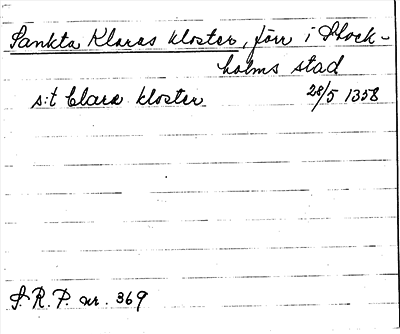 Sankta Klaras kloster, förr i Stock-
holms stad
s:t Clara kloster 28/5 1358
S.R.P. nr. 369